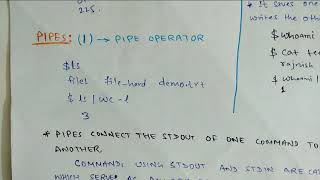 225.
PIPES: (|) → PIPE OPERATOR
$ ls
files file-hard demo.txt
$ ls | wc -l
3
* PIPES CONNECT THE STDOUT OF ONE COMMAND TO
ANOTHER.
COMMANDS USING STDOUT AND STDIN ARE
WHICH SERVE AS
* It saves one
writes the othe
$ whoami
$ cat te
rajnish
$ whoami |
1